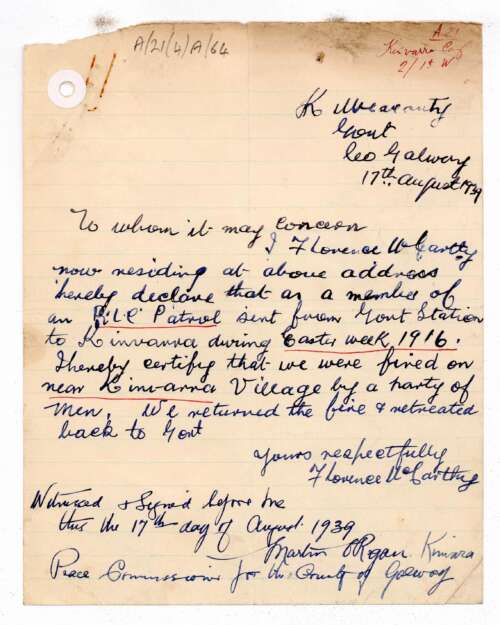 A/21(4)A/64
A 21
Kinvarra Coy
2/1st W
Gort
Co Galway
17th August 1939
To whom it may concern
I Florence McCarthy
now residing at above address
hereby declare that as a member of
an R.I.C Patrol sent from Gort Station
to Kinvarra during Easter week 1916.
I hereby certify that we were fired on
near Kinvarra Village by a party of
men. We returned the fire & retreated
back to Gort
Yours respectfully
Florence McCarthy
Witnessed & Signed before me
this the 17th day of August 1939
Martin O'Regan Kinvara
Peace Commissioner for the County of Galway